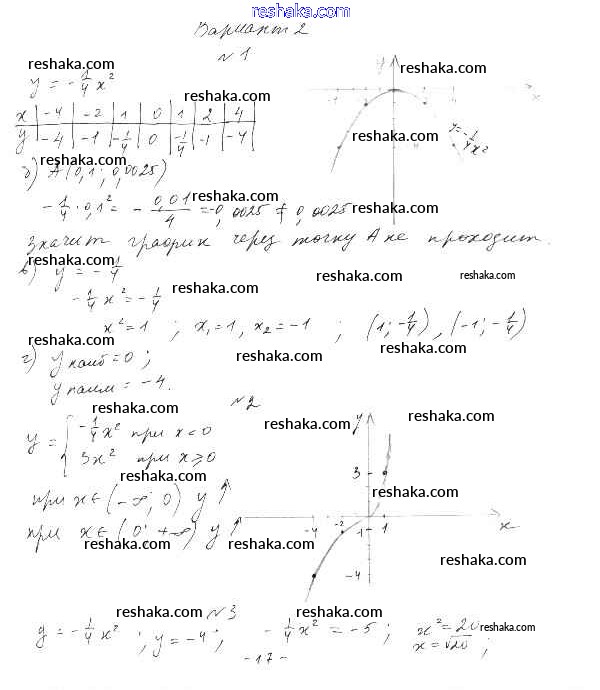 reshaka.com
Вариант 2
№1
reshaka.com
y = -1/4 x²
reshaka.com
x | -4 | -2 | 1 | 0 | 1 | 2 | 4
y | -4 | -1 | -1/4 | 0 | -1/4 | -1 | -4
y
reshaka.com
x
y=-1/4x²
reshaka.com
б) A(0,1; 0,0025)
reshaka.com
-1/4 · 0,1² = - 0,01/4 = -0,0025 ≠ 0,0025
reshaka.com
reshaka.com
Значит график через точку А не проходит.
reshaka.com
в) y = -1/4
reshaka.com
reshaka.com
-1/4 x² = -1/4
reshaka.com
x² = 1 ; x₁ = 1, x₂ = -1 ; (1; -1/4), (-1; -1/4)
reshaka.com
reshaka.com
г) y наиб = 0 ;
reshaka.com
y наим = -4.
reshaka.com
№2
reshaka.com
reshaka.com
y = { -1/4 x² при x < 0
3x² при x ≥ 0
reshaka.com
при x ∈ (-∞; 0) y ↑
при x ∈ (0; +∞) y ↑
reshaka.com
reshaka.com
y
3
reshaka.com
-4 -2 -1 1 x
-4
reshaka.com
reshaka.com
№3
reshaka.com
y = -1/4 x² ; y = -4 ; -1/4 x² = -5 ; x² = 20
reshaka.com
x = √20 ;
-17-